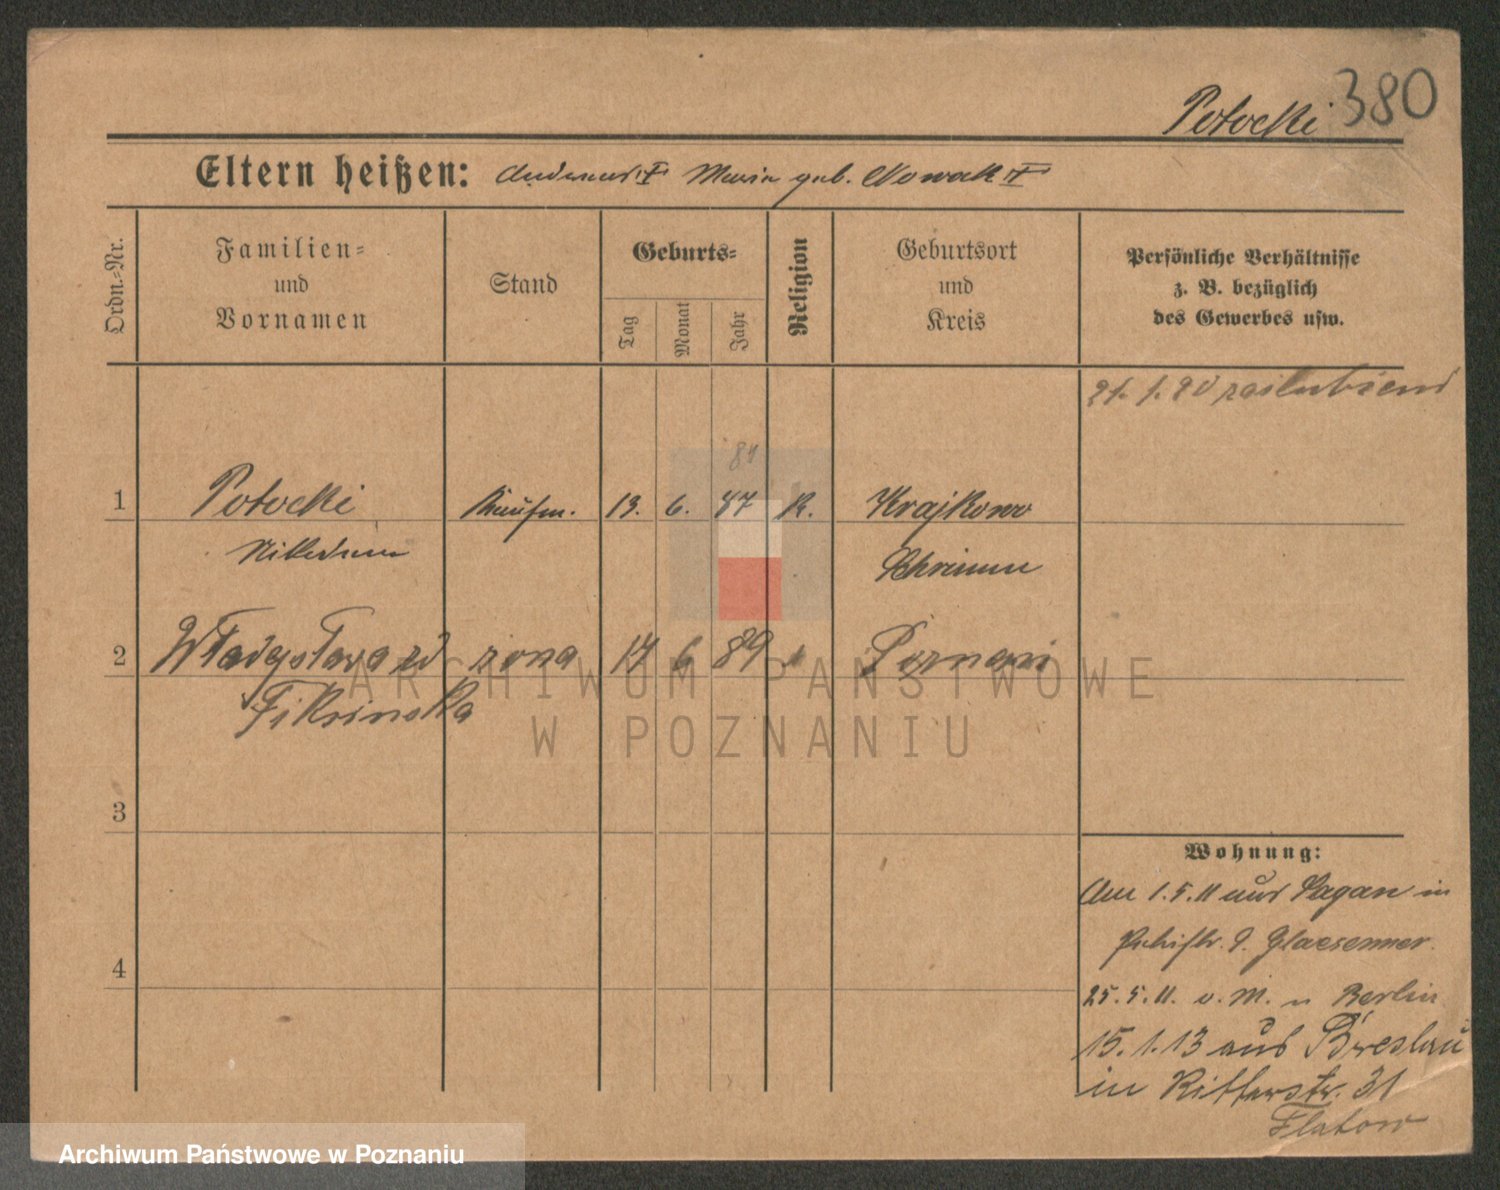 Potocki 380
Eltern heißen: Maria geb. Nowak
Ordn.-Nr.
Familien-
und
Vornamen
Stand
Geburts-
Tag
Monat
Jahr
Religion
Geburtsort
und
Kreis
Persönliche Verhältnisse
z. B. bezüglich
des Gewerbes usw.
21. 1. 20
81
1 Potocki Kaufm. 13. 6. 87 K. Krajkowo
Schrimm
2 Władysława zd żona 17 6 89 Poznań
Fiksińska
ARCHIWUM PAŃSTWOWE
W POZNANIU
3
4
Wohnung:
Am 1.5.11 aus Sagan in
9. Glaesemer.
25.5.11. v. M. n Berlin
15.1.13 aus Breslau
in Ritterstr. 31
Flatow
Archiwum Państwowe w Poznaniu